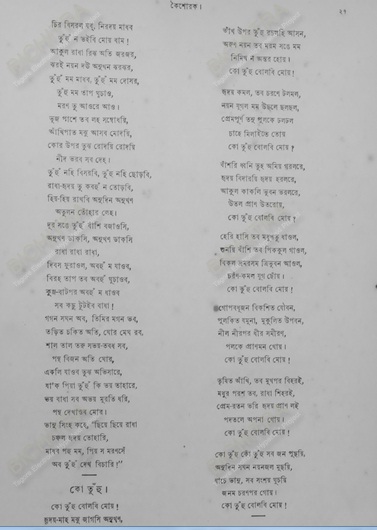 কৈশোরক।
২৭
চির বিসরল যব, নিরদয় মাধব
তুঁহু ন ভইবি মোয় বাম!
আকুল রাধা রিঝ অতি জরজর,
ঝরই নয়ন দউ অনুখন ঝরঝর,
তুঁহু মম মাধব, তুঁহু মম দোসর,
তুঁহু মম তাপ ঘুচাও,
মরণ তু আওরে আও।
ভুজ পাশে তব লহ সম্বোধয়ি,
আঁখিপাত মঝু আসব মোদয়ি,
কোর উপর তুঝ রোদয়ি রোদয়ি
নীদ ভরব সব দেহ।
তুঁহু নহি বিসরবি, তুঁহু নহি ছোড়বি,
রাধা-হৃদয় তু কবহুঁ ন তোড়বি,
হিয়-হিয় রাখবি অনুদিন অনুখন
অতুলন তোঁহার লেহ।
দূর সঙে তুঁহু বাঁশি বজাওসি,
অনুখণ ডাকসি, অনুখণ ডাকসি
রাধা রাধা রাধা,
দিবস ফুরাওল, অবহুঁ ম যাওব,
বিরহ তাপ তব অবহুঁ ঘুচাওব,
কুঞ্জ-বাটপর অবহুঁ ম ধাওব
সব কছু টুটইব বাধা!
গগন সঘন অব, তিমির মগন ভব,
তড়িত চকিত অতি, ঘোর মেঘ রব,
শাল তাল তরু সভয়-তবধ সব,
পন্থ বিজন অতি ঘোর,
একলি যাওব তুঝ অভিসারে,
যা'ক পিয়া তুঁহু কি ভয় তাহারে,
ভয় বাধা সব অভয় মুরতি ধরি,
পন্থ দেখাওব মোর।
ভানু সিংহ কহে, "ছিয়ে ছিয়ে রাধা
চঞ্চল হৃদয় তোহারি,
মাধব পহু মম, পিয় স মরণসেঁ
অব তুঁহু দেখ বিচারি।"
কো তুঁহু।
কো তুঁহু বোলবি মোয়!
হৃদয়-মাহ মঝু জাগসি অনুখণ,
আঁখ উপর তুঁহু রচলহি আসন,
অরুণ নয়ন তব মরম সঙে মম
নিমিখ ন অন্তর হোয়।
কো তুঁহু বোলবি মোয়!
হৃদয় কমল, তব চরণে টলমল,
নয়ন যুগল মম উছলে ছলছল,
প্রেমপূর্ণ তনু পুলকে ঢলঢল
চাহে মিলাইতে তোয়
কো তুঁহু বোলবি মোয়!
বাঁশরি ধ্বনি তুহ অমিয় গরলরে,
হৃদয় বিদারয়ি হৃদয় হরলরে,
আকুল কাকলি ভুবন ভরলরে,
উতল প্রাণ উতরোয়,
কো তুঁহু বোলবি মোয়!
হেরি হাসি তব মধুঋতু ধাওল,
শুনয়ি বাঁশি তব পিককুল গাওল,
বিকল ভ্রমরসম ত্রিভুবন আওল,
চরণ-কমল যুগ ছোঁয়।
কো তুঁহু বোলবি মোয়!
গোপবধূজন বিকশিত যৌবন,
পুলকিত যমুনা, মুকুলিত উপবন,
নীল নীরপর ধীর সমীরণ,
পলকে প্রাণমন খোয়।
কো তুঁহু বোলবি মোয়!
তৃষিত আঁখি, তব মুখপর বিহরই,
মধুর পরশ তব, রাধা শিহরই,
প্রেম-রতন ভরি হৃদয় প্রাণ লই
পদতলে অপনা থোয়।
কো তুঁহু বোলবি মোয়!
কো তুঁহু কো তুঁহু সব জন পুছয়ি,
অনুদিন সঘন নয়নজল মুছয়ি,
যাচে ভানু, সব সংশয় ঘুচয়ি
জনম চরণপর গোয়।
কো তুঁহু বোলবি মোয়!